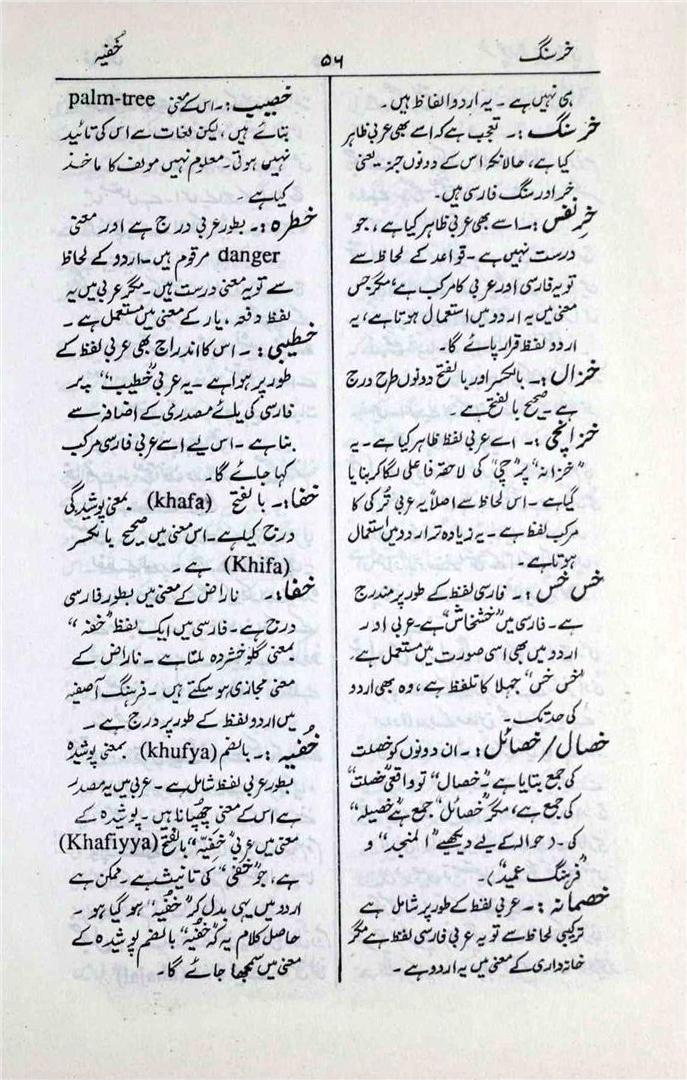 خرسنگ ۵۶ خُفیہ
ہی نہیں ہے ۔ یہ اردو الفاظ ہیں ۔
خرسنگ :۔ تعجب ہے کہ اسے بھی عربی ظاہر
کیا ہے ، حالانکہ اس کے دونوں جز یعنی
خر اور سنگ فارسی ہیں ۔
خرِ نفس :۔ اسے بھی عربی ظاہر کیا ہے ، جو
درست نہیں ہے ۔ قواعد کے لحاظ سے
تو یہ فارسی اور عربی کا مرکب ہے ، مگر جس
معنی میں یہ اردو میں استعمال ہوتا ہے ، یہ
اردو لفظ قرار پائے گا ۔
خزال :۔ بالکسر اور بالفتح دونوں طرح درج
ہے ۔ صحیح بالفتح ہے ۔
خزانچی :۔ اسے عربی لفظ ظاہر کیا ہے ۔ یہ
”خزانہ“ پر ”چی“ کی لاحقۂ فاعلی لگا کر بنایا
گیا ہے ۔ اس لحاظ سے اصلاً یہ عربی تُرکی کا
مرکب لفظ ہے ۔ یہ زیادہ تر اردو میں استعمال
ہوتا ہے ۔
خس خس :۔ فارسی لفظ کے طور پر مندرج
ہے ۔ فارسی میں ”خشخاش“ ہے ۔ عربی اور
اردو میں بھی اسی صورت میں مستعمل ہے ۔
”خس خس“ جہلا کا تلفظ ہے ، وہ بھی اردو
کی حد تک ۔
خصال / خصائل :۔ ان دونوں کو خصلت
کی جمع بتایا ہے ۔ ”خصال“ تو واقعی ”خصلت“
کی جمع ہے ، مگر ”خصائل“ جمع ہے ”خصیلہ“
کی ۔ (حوالہ کے لیے دیکھیے ”المنجد“ و
”فرہنگ عمید“) ۔
خصمانہ :۔ عربی لفظ کے طور پر شامل ہے
ترکیبی لحاظ سے تو یہ عربی فارسی لفظ ہے مگر
خانہ داری کے معنی میں یہ اردو ہے ۔
خصیب :۔ اس کے معنی palm-tree
بتائے ہیں ، لیکن لغات سے اس کی تائید
نہیں ہوتی ۔ معلوم نہیں مولف کا ماخذ
کیا ہے ۔
خطرہ :۔ بطور عربی درج ہے اور معنی
danger مرقوم ہیں ۔ اردو کے لحاظ
سے تو یہ معنی درست ہیں ۔ مگر عربی میں یہ
لفظ دفعہ ، بار کے معنی میں مستعمل ہے ۔
خطیبی :۔ اس کا اندراج بھی عربی لفظ کے
طور پر ہوا ہے ۔ یہ عربی ”خطیب“ پر
فارسی کی یائے مصدری کے اضافہ سے
بنا ہے ۔ اس لیے اسے عربی فارسی مرکب
کہا جائے گا ۔
خفا :۔ بالفتح (khafa) بمعنی پوشیدگی
درج کیا ہے ۔ اس معنی میں صحیح بالکسر
(Khifa) ہے ۔
خفا :۔ ناراض کے معنی میں بطور فارسی
درج ہے ۔ فارسی میں ایک لفظ ”خفہ“
بمعنی گلو فشردہ ملتا ہے ۔ ناراض کے
معنی مجازی ہو سکتے ہیں ۔ فرہنگ آصفیہ
میں اردو لفظ کے طور پر درج ہے ۔
خُفیہ :۔ بالضم (khufya) بمعنی پوشیدہ
بطور عربی لفظ شامل ہے ۔ عربی میں یہ مصدر
ہے اس کے معنی چھپانا ہیں ۔ پوشیدہ کے
معنی میں عربی ”خَفِیّہ“ بالفتح (Khafiyya)
ہے ، جو ”خفی“ کی تانیث ہے ۔ ممکن ہے
اردو میں یہی بدل کر ”خُفیہ“ ہو گیا ہو ۔
حاصل کلام یہ کہ ”خُفیہ“ بالضم پوشیدہ کے
معنی میں سمجھا جائے گا ۔